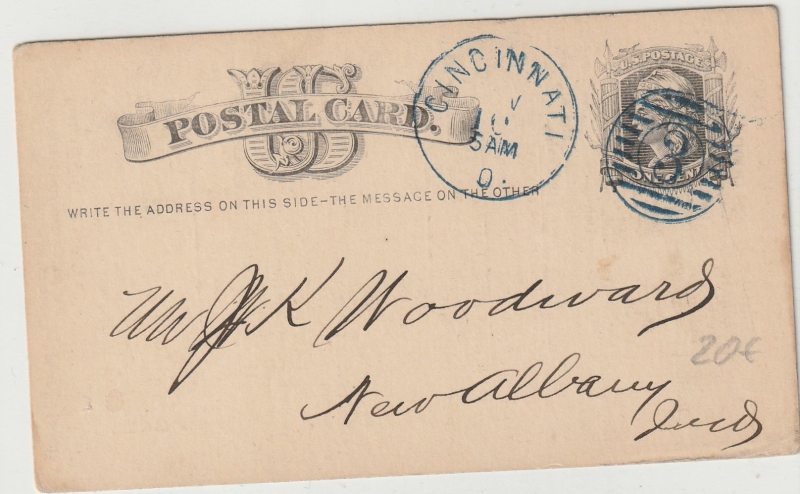 US
POSTAL CARD.
WRITE THE ADDRESS ON THIS SIDE-THE MESSAGE ON THE OTHER
CINCINNATI
10
5AM
O.
U.S. POSTAGE
ONE CENT
3
K Woodward
New Albany
Ind
20€